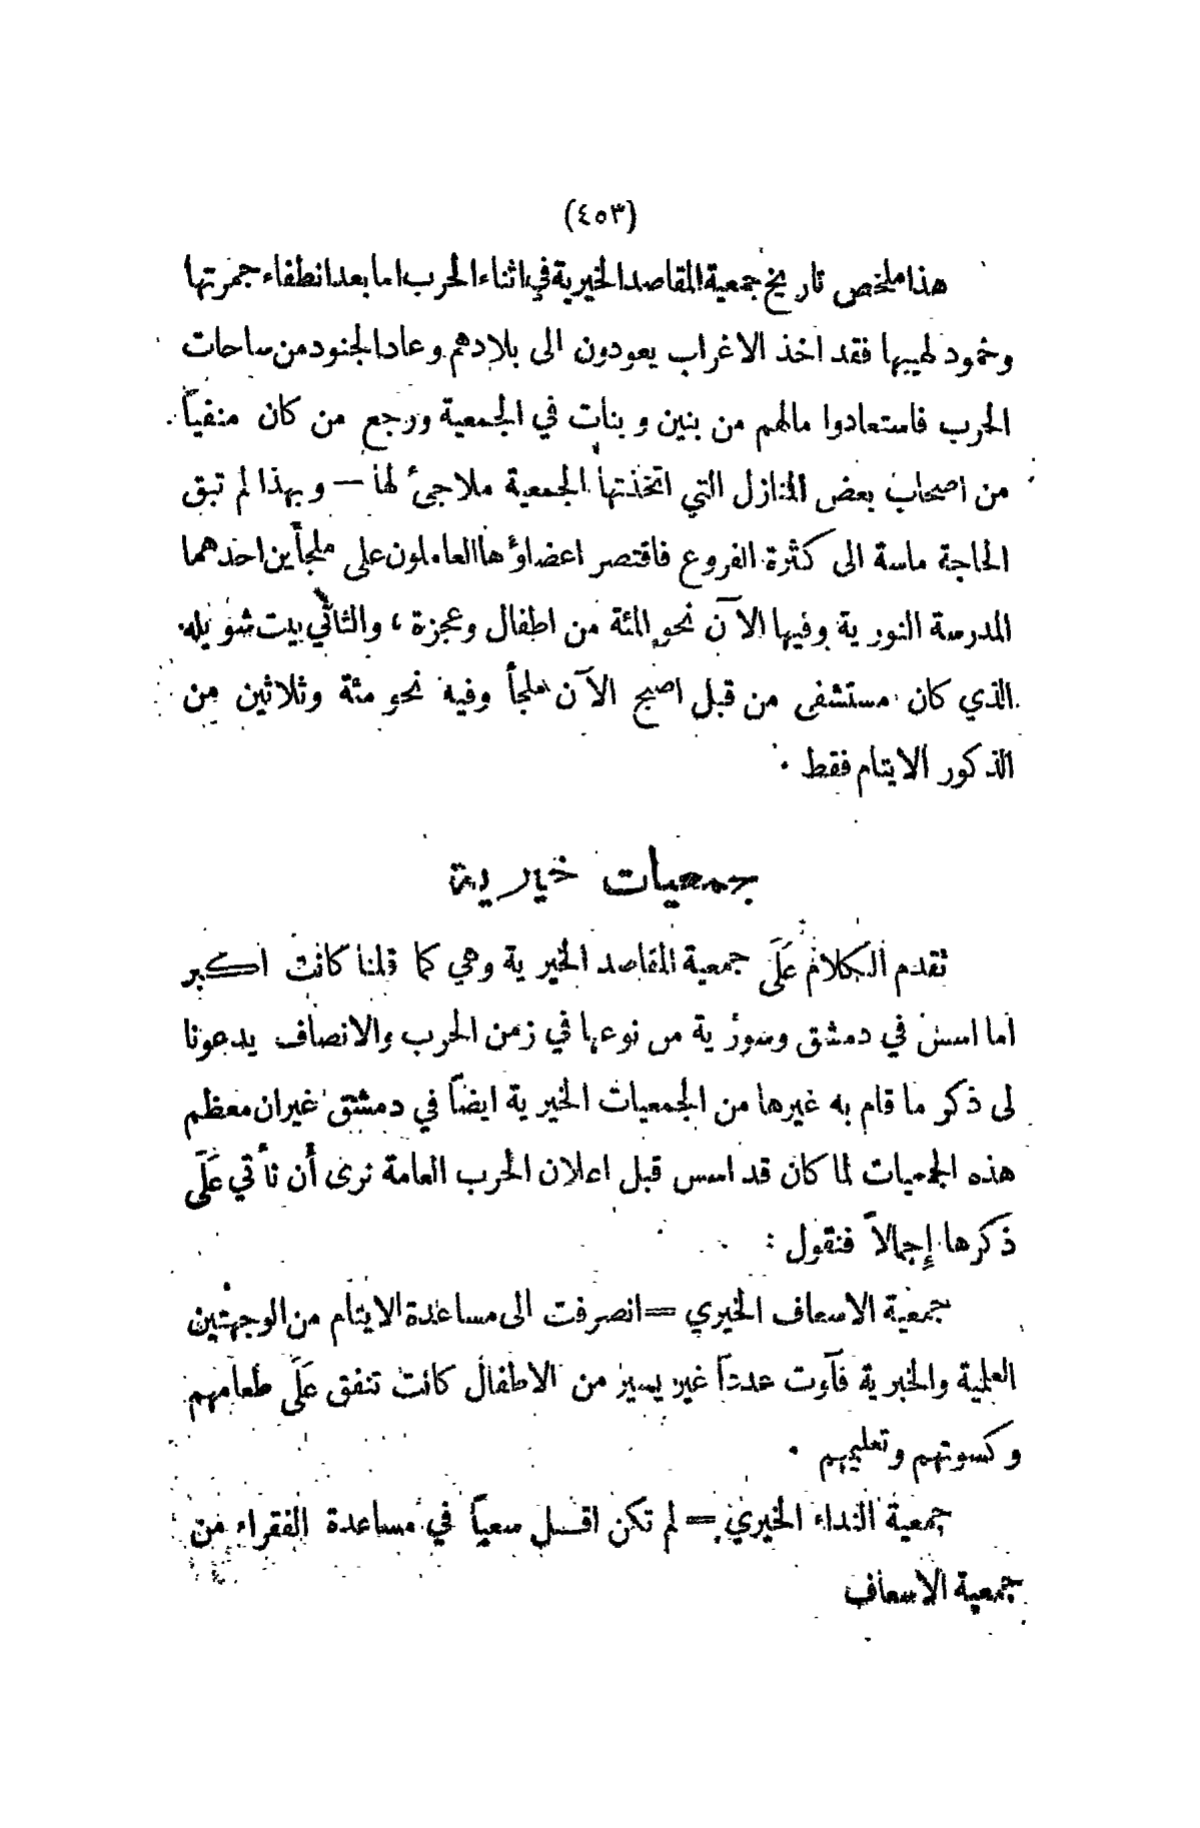 (٤٥٣)
هذا ملخص تاريخ جمعية المقاصد الخيرية في اثناء الحرب اما بعد انطفاء جمرتها
وخمود لهيبها فقد اخذ الاغراب يعودون الى بلادهم وعاد الجنود من ساحات
الحرب فاستعادوا مالهم من بنين وبنات في الجمعية ورجع من كان منفياً
من اصحاب بعض المنازل التي اتخذتها الجمعية ملاجئ لها — وبهذا لم تبق
الحاجة ماسة الى كثرة الفروع فاقتصر اعضاؤها العاملون على ملجأين احدهما
المدرسة النورية وفيها الآن نحو المئة من اطفال وعجزة ، والثاني بيت شويله
الذي كان مستشفى من قبل اصبح الآن ملجأ وفيه نحو مئة وثلاثين من
الذكور الايتام فقط ٠
جمعيات خيرية
تقدم الكلام عَلَى جمعية المقاصد الخيرية وهي كما قلنا كانت اكبر
اما اسس في دمشق وسورية من نوعها في زمن الحرب والانصاف يدعونا
لى ذكر ما قام به غيرها من الجمعيات الخيرية ايضاً في دمشق غير ان معظم
هذه الجمعيات لما كان قد اسس قبل اعلان الحرب العامة نرى أن نأتي عَلَى
ذكرها إجمالاً فنقول :
جمعية الاسعاف الخيري = انصرفت الى مساعدة الايتام من الوجهتين
العلمية والخيرية فآوت عدداً غير يسير من الاطفال كانت تنفق عَلَى طعامهم
وكسوتهم وتعليمهم ٠
جمعية النداء الخيري = لم تكن اقل سعياً في مساعدة الفقراء من
جمعية الاسعاف